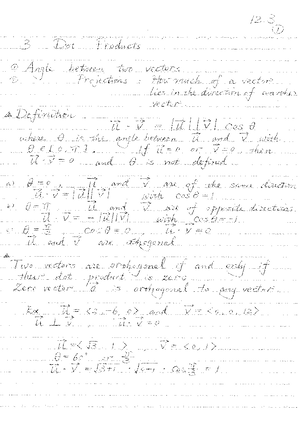 12.3
①
3 Dot Products
① Angle between two vectors
② Projections : How much of a vector
lies in the direction of another
vector
Definition
u⃗ · v⃗ = |u⃗| |v⃗| cos θ
where θ is the angle between u⃗ and v⃗ with
θ ∈ [0, π]. If u⃗ = 0 or v⃗ = 0 then
u⃗ · v⃗ = 0 and θ is not defined
a) θ = 0, u⃗ and v⃗ are of the same direction
u⃗ · v⃗ = |u⃗||v⃗| with cos θ = 1
b) θ = π u⃗ and v⃗ are of opposite directions
u⃗ · v⃗ = - |u⃗||v⃗| with cos θ = -1
c) θ = π/2 cos θ = 0 u⃗ · v⃗ = 0
u⃗ and v⃗ are orthogonal
Two vectors are orthogonal if and only if
their dot product is zero
Zero vector 0⃗ is orthogonal to any vector
Ex. u⃗ = <2, -6, 0> and v⃗ = <, 0, 12>
u⃗ ⊥ v⃗ u⃗ · v⃗ = 0
u⃗ = <√3, 1> v⃗ = <0, 1>
θ = 60° or
u⃗ · v⃗ = √3+1 · √0+1 · cos = 1